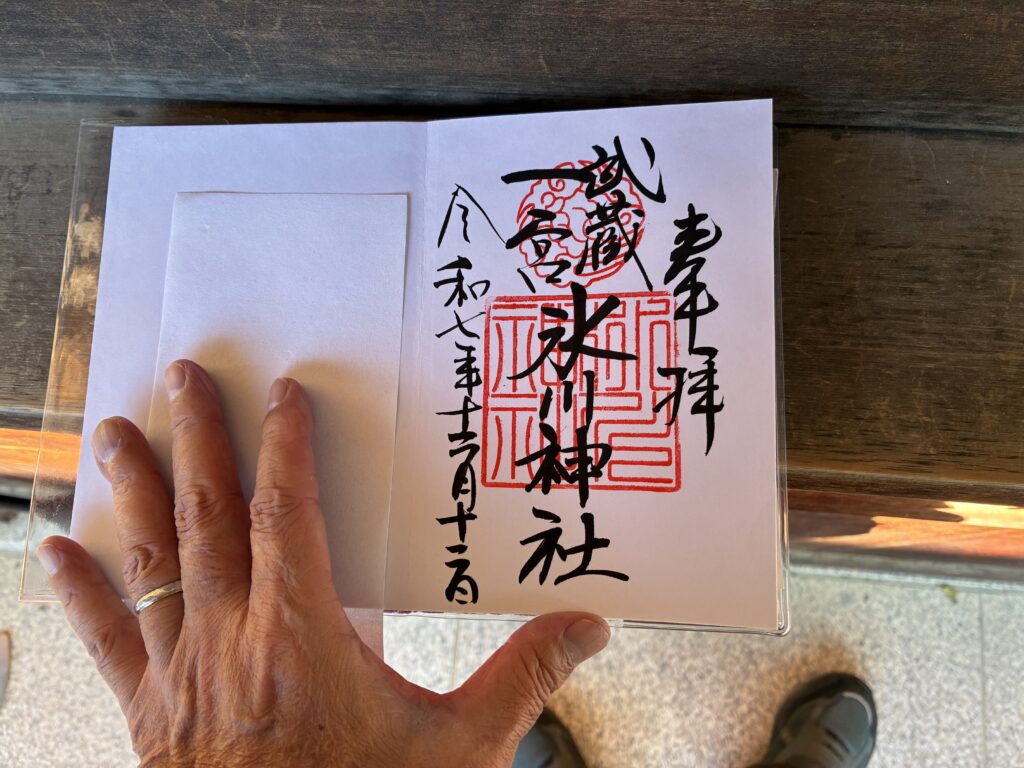 奉拝
武蔵
一宮
氷川神社
令和七年十二月十二日